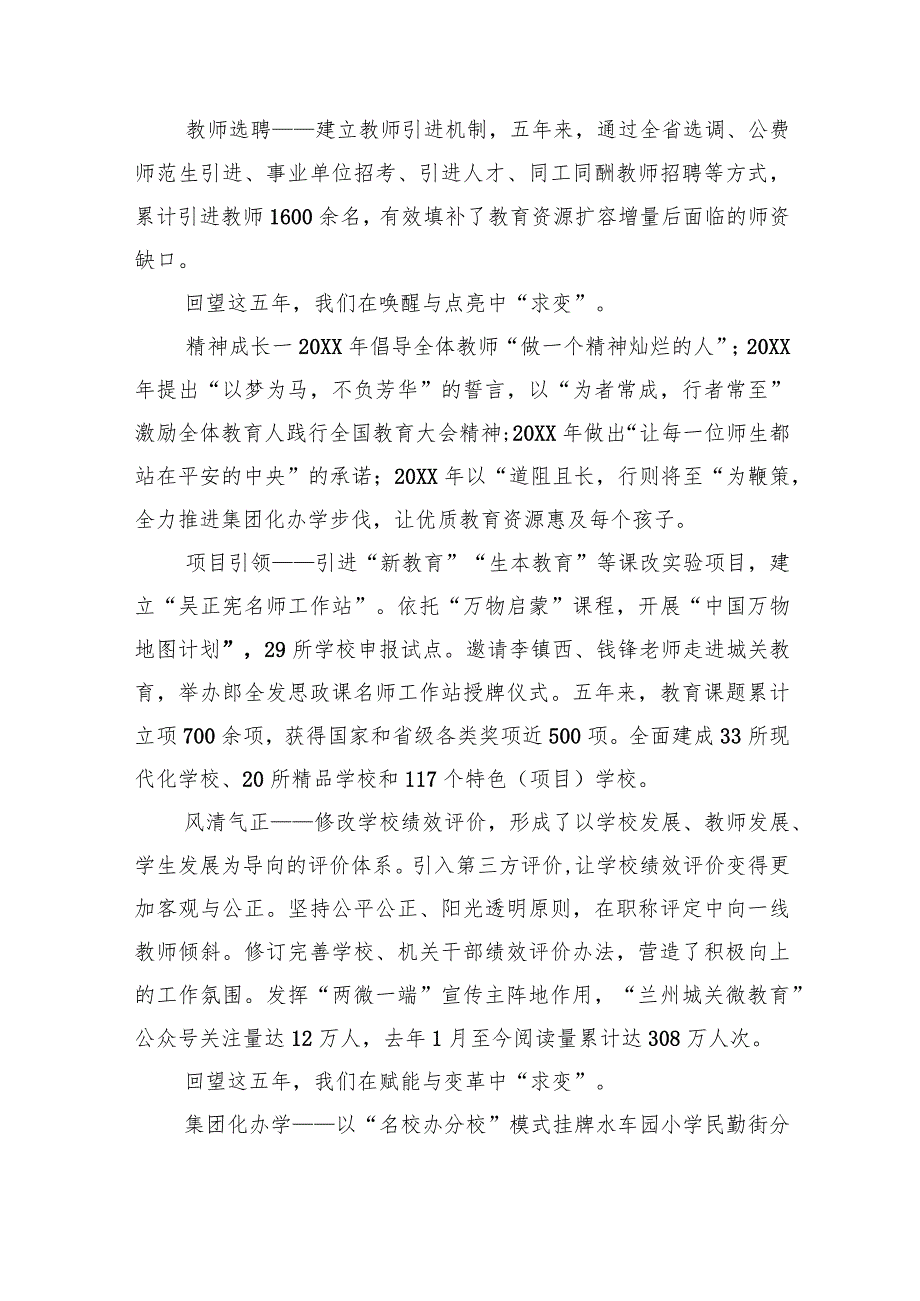 教师选聘——建立教师引进机制，五年来，通过全省选调、公费
师范生引进、事业单位招考、引进人才、同工同酬教师招聘等方式，
累计引进教师 1600 余名，有效填补了教育资源扩容增量后面临的师资
缺口。
回望这五年，我们在唤醒与点亮中“求变”。
精神成长一 20XX 年倡导全体教师“做一个精神灿烂的人”；20XX
年提出“以梦为马，不负芳华”的誓言，以“为者常成，行者常至”
激励全体教育人践行全国教育大会精神;20XX 年做出“让每一位师生都
站在平安的中央”的承诺；20XX 年以“道阻且长，行则将至“为鞭策，
全力推进集团化办学步伐，让优质教育资源惠及每个孩子。
项目引领——引进“新教育”“生本教育”等课改实验项目，建
立“吴正宪名师工作站”。依托“万物启蒙”课程，开展“中国万物
地图计划”，29 所学校申报试点。邀请李镇西、钱锋老师走进城关教
育，举办郎全发思政课名师工作站授牌仪式。五年来，教育课题累计
立项 700 余项，获得国家和省级各类奖项近 500 项。全面建成 33 所现
代化学校、20 所精品学校和 117 个特色（项目）学校。
风清气正——修改学校绩效评价，形成了以学校发展、教师发展、
学生发展为导向的评价体系。引入第三方评价,让学校绩效评价变得更
加客观与公正。坚持公平公正、阳光透明原则，在职称评定中向一线
教师倾斜。修订完善学校、机关干部绩效评价办法，营造了积极向上
的工作氛围。发挥“两微一端”宣传主阵地作用，“兰州城关微教育”
公众号关注量达 12 万人，去年 1 月至今阅读量累计达 308 万人次。
回望这五年，我们在赋能与变革中“求变”。
集团化办学——以“名校办分校”模式挂牌水车园小学民勤街分